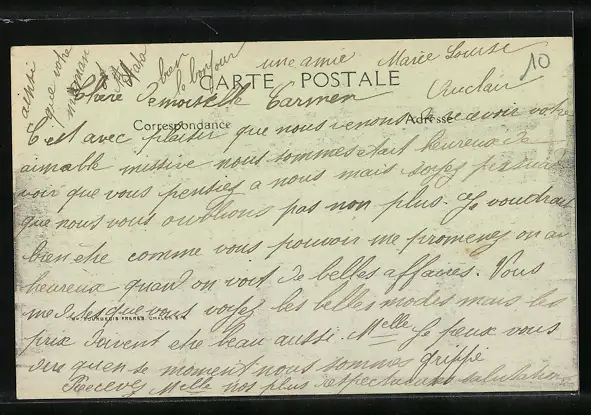 CARTE POSTALE
Correspondance
Adresse
10
Chère Demoiselle Carmen
C'est avec plaisir que nous venons de recevoir votre
aimable missive nous sommes était heureux de
voir que vous pensiez a nous mais soyez persuadé
que nous vous oublions pas non plus. Je voudrais
bien être comme vous pouvoir me promenez on ai
heureux quand on voit de belles affaires. Vous
me dites que vous voyez les belles modes mais les
prix doivent etre beau aussi. Melle Je peux vous
dire qu'en se moment nous sommes grippé
Recevez Melle nos plus respectueuses salutations
une amie Marie Louise
Auclair
bien le bonjour
ainsi
que votre
maman
BOURGEOIS FRERES CHALON S/S